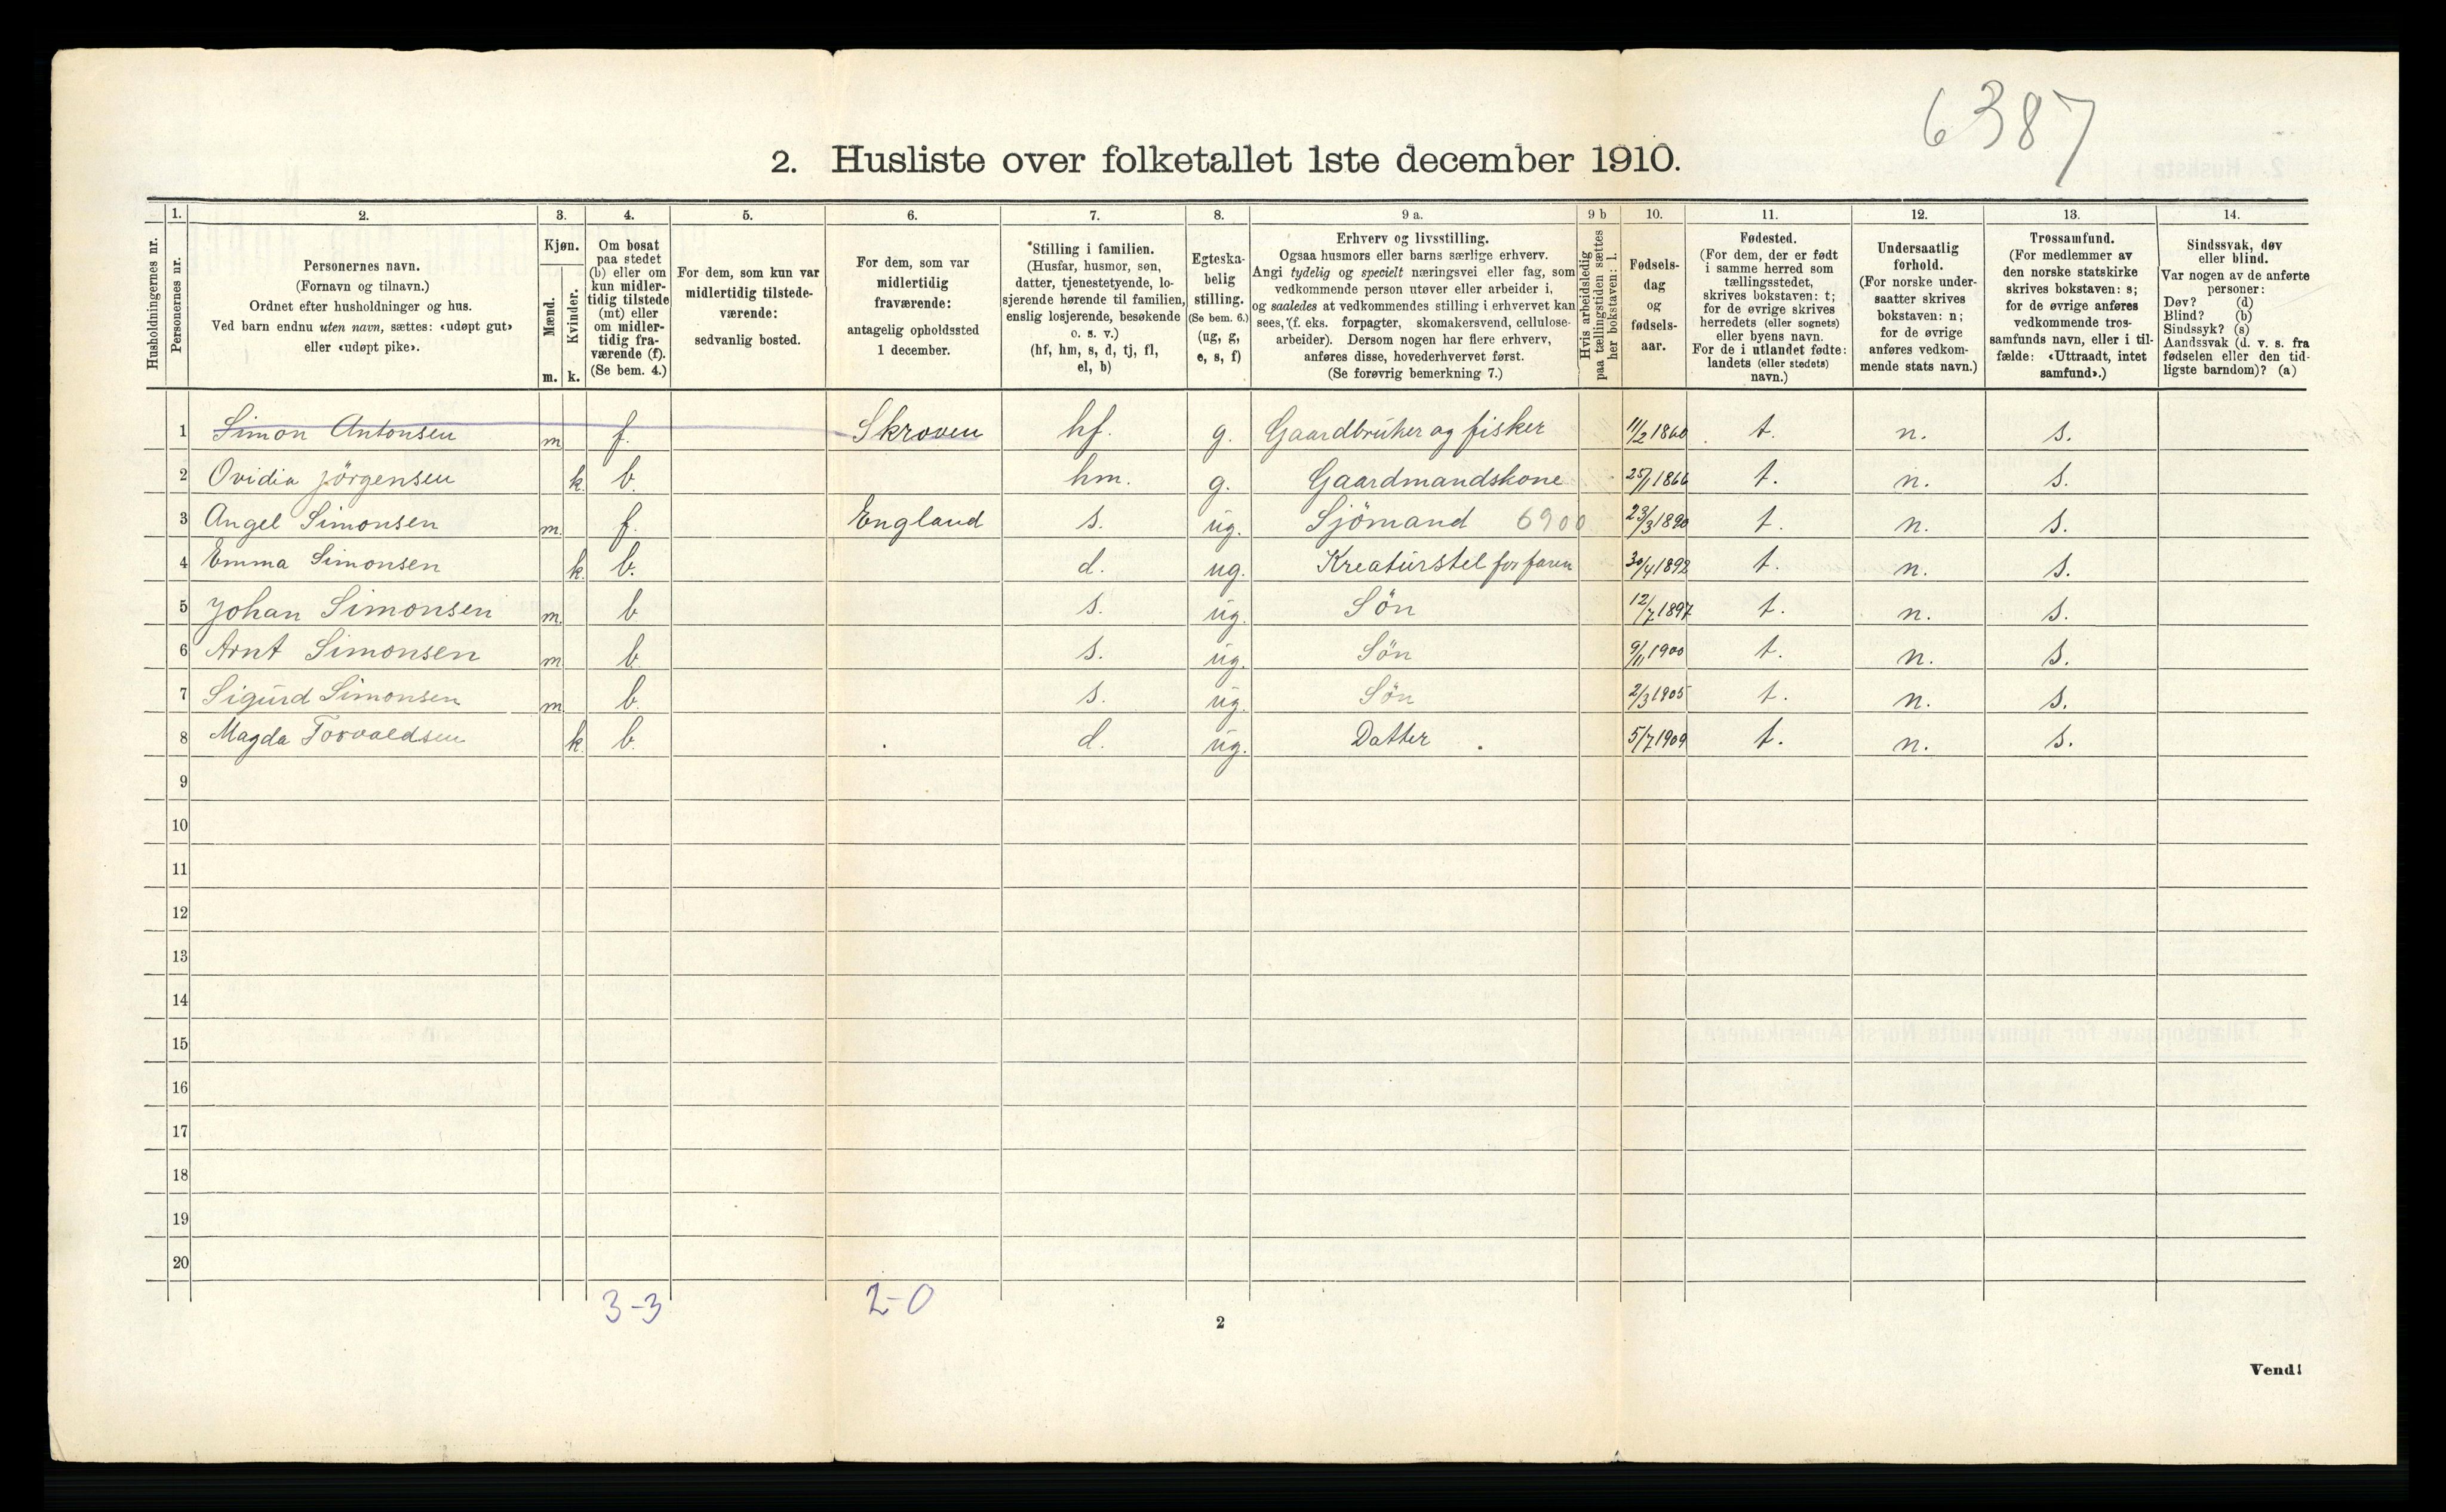 6387
2. Husliste over folketallet 1ste december 1910.
1. 2. 3. 4. 5. 6. 7. 8. 9 a. 9 b 10. 11. 12. 13. 14.
Husholdningernes nr.
Personernes nr.
Personernes navn.
(Fornavn og tilnavn.)
Ordnet efter husholdninger og hus.
Ved barn endnu uten navn, sættes: «udøpt gut»
eller «udøpt pike».
Kjøn.
Mænd.
Kvinder.
m. k.
Om bosat
paa stedet
(b) eller om
kun midler-
tidig tilstede
(mt) eller
om midler-
tidig fra-
værende (f).
(Se bem. 4.)
For dem, som kun var
midlertidig tilstede-
værende:
sedvanlig bosted.
For dem, som var
midlertidig
fraværende:
antagelig opholdssted
1 december.
*Stilling i familien.
(Husfar, husmor, søn,
datter, tjenestetyende, lo-
sjerende hørende til familien,
enslig losjerende, besøkende
o. s. v.)
(hf, hm, s, d, tj, fl,
el, b)
Egteska-
belig
stilling.
(Se bem. 6.)
(ug, g,
e, s, f)
Erhverv og livsstilling.
Ogsaa husmors eller barns særlige erhverv.
Angi tydelig og specielt næringsvei eller fag, som
vedkommende person utøver eller arbeider i,
og saaledes at vedkommendes stilling i erhvervet kan
sees, (f. eks. forpagter, skomakersvend, cellulose-
arbeider). Dersom nogen har flere erhverv,
anføres disse, hovederhvervet først.
(Se forøvrig bemerkning 7.)
Hvis arbeidsledig
paa tællingstiden sættes
her bokstaven: l.
Fødsels-
dag
og
fødsels-
aar.
Fødested.
(For dem, der er født
i samme herred som
tællingsstedet,
skrives bokstaven: t;
for de øvrige skrives
herredets (eller sognets)
eller byens navn.
For de i utlandet fødte:
landets (eller stedets)
navn.)
Undersaatlig
forhold.
(For norske under-
saatter skrives
bokstaven: n;
for de øvrige
anføres vedkom-
mende stats navn.)
Trossamfund.
(For medlemmer av
den norske statskirke
skrives bokstaven: s;
for de øvrige anføres
vedkommende tros-
samfunds navn, eller i til-
fælde: «Uttraadt, intet
samfund».)
Sindssvak, døv
eller blind.
Var nogen av de anførte
personer:
Døv? (d)
Blind? (b)
Sindssyk? (s)
Aandssvak (d. v. s. fra
fødselen eller den tid-
ligste barndom)? (a)
1 Simon Antonsen m f. Skroven hf. g. Gaardbruker og fisker 11/2 1860 t. n. s.
2 Ovidia Jörgensen k. b. hm. g. Gaardmandskone 25/1 1866 t. n. s.
3 Angel Simonsen m. f. England s. ug. Sjömand 6900 23/3 1890 t. n. s.
4 Emma Simonsen k. b. d. ug. Kreaturstel for faren 30/4 1892 t. n. s.
5 Johan Simonsen m. b s. ug. Sön 12/7 1897 t. n. s.
6 Arnt Simonsen m b. s. ug. Sön 9/11 1900 t. n. s.
7 Sigurd Simonsen m. b. s. ug. Sön 2/3 1905 t. n. s.
8 Magda Torvaldsen k. b. d. ug. Datter 5/7 1909 t. n. s.
9
10
11
12
13
14
15
16
17
18
19
20
3-3 2-0
2
Vend!